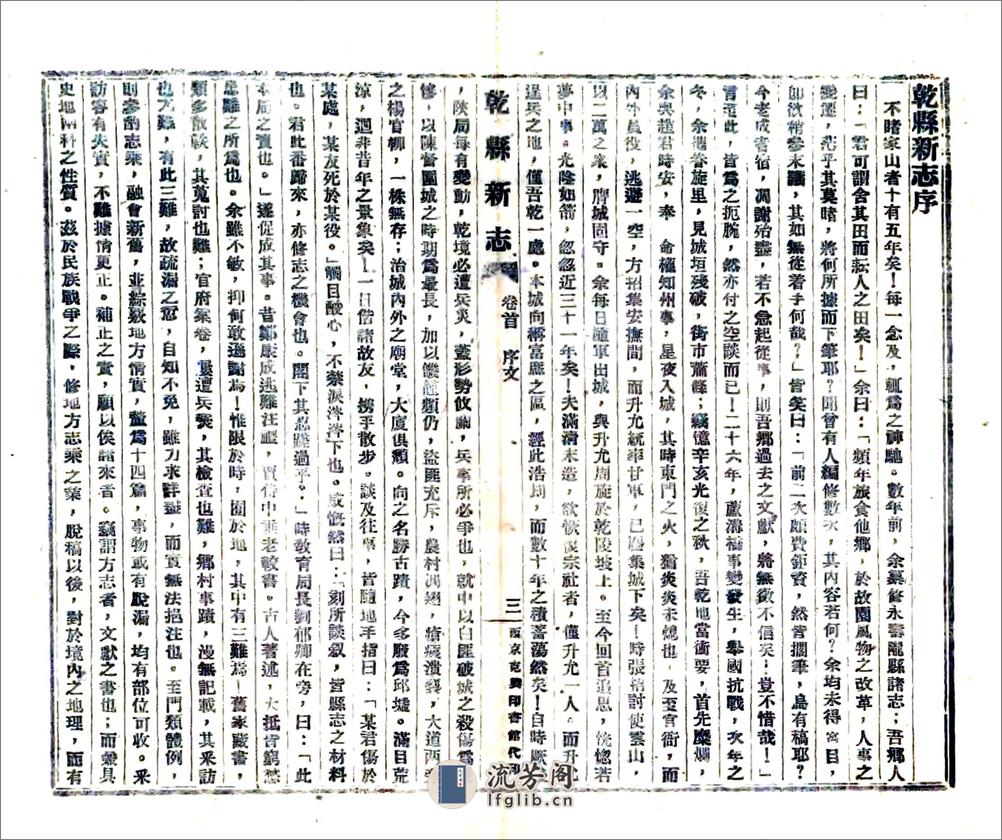 乾縣新志序
不睹家山者十有五年矣！每一念及，輒爲之神馳。數年前，余纂修永壽隴縣諸志；吾鄉人
曰：「君可謂舍其田而耘人之田矣！」余曰：「頻年旅食他鄉，於故園風物之改革，人事之
變遷，茫乎其莫睹，將何所據而下筆耶？聞曾有人編修數次，其內容若何？余均未得寓目，
卽欲稍參末議，其如無從着手何哉？」皆笑曰：「前二次頗費鉅資，然皆擱筆，烏有稿耶？
今老成耆宿，凋謝殆盡，若不急起從事，則吾鄉過去之文獻，將無徵不信矣；豈不惜哉！」
言道此，皆爲之扼腕，然亦付之空談而已！二十六年，蘆溝橋事變發生，舉國抗戰，次年之
冬，余攜眷旋里，見城垣殘破，街市蕭條；竊憶辛亥光復之秋，吾乾地當衝要，首先糜爛，
余與趙君時安，奉　命權知州事，星夜入城，其時東門之火，猶炎炎未熄也，及至官衙，而
內外員役，逃避一空，方招集安撫間，而升允統率甘軍，已麕集城下矣！時張招討使雲山，
以二萬之衆，膺城固守。余每日隨軍出城，與升允周旋於乾陵坡上。至今回首追思，恍惚若
夢中事。光陰如箭，忽忽近三十一年矣！夫滿清末造，欲恢復宗社者，僅升允一人。而升允
逞兵之地，僅吾乾一處。本城向稱富庶之區，經此浩劫，而數十年之積蓄蕩然矣！自時厥
乾縣新志　卷首　序文
三
西京克興印書館代印
，陝局每有變動，乾境必遭兵災，蓋形勢攸關，兵事所必爭也，就中以白匪破城之殺傷爲
慘，以陳督圍城之時期爲最長，加以饑饉頻仍，盜匪充斥，農村凋翅，瘡痍潰裂，大道西旁
之楊官柳，一株無存；治城內外之廟堂，大廈俱頹。向之名勝古蹟，今多廢爲邱墟。滿目荒
涼，迥非昔年之景象矣！一日偕諸故友，携手散步。談及往事，皆隨地手指曰：「某君傷於
某處，某友死於某役。」觸目酸心，不禁淚涔涔下也。故慨然曰：「刻所談叙，皆縣志之材料
也。君此番歸來，亦修志之機會也。閣下其忍蹉過乎。」時敎育局長劉郁卿在旁，曰：「此
本局之責也。」遂促成其事。昔鄭康成逃難注禮，賈偉中垂老較書。古人著述，大抵皆窮愁
患難之所爲也。余雖不敏，抑何敢遜謝焉！惟限於時，囿於地，其中有三難焉—舊家藏書，
類多散軼，其蒐討也難；官府案卷，屢遭兵燹，其檢查也難，鄉村事蹟，漫無記載，其采訪
也尤難，有此三難，故疏漏之愆，自知不免，雖力求詳盡，而實無法挹注也。至門類體例，
則參酌志乘，融會新舊，並綜覈地方情實，釐爲十四篇，事物或有脫漏，均有部位可收。采
訪容有失實，不難據情更正。補止之責，願以俟諸來者。竊謂方志者，文獻之書也；而兼具
史地兩科之性質。茲於民族戰爭之際，修地方志乘之業，脫稿以後，對於境內之地理，而有
流芳阁
lfglib.cn